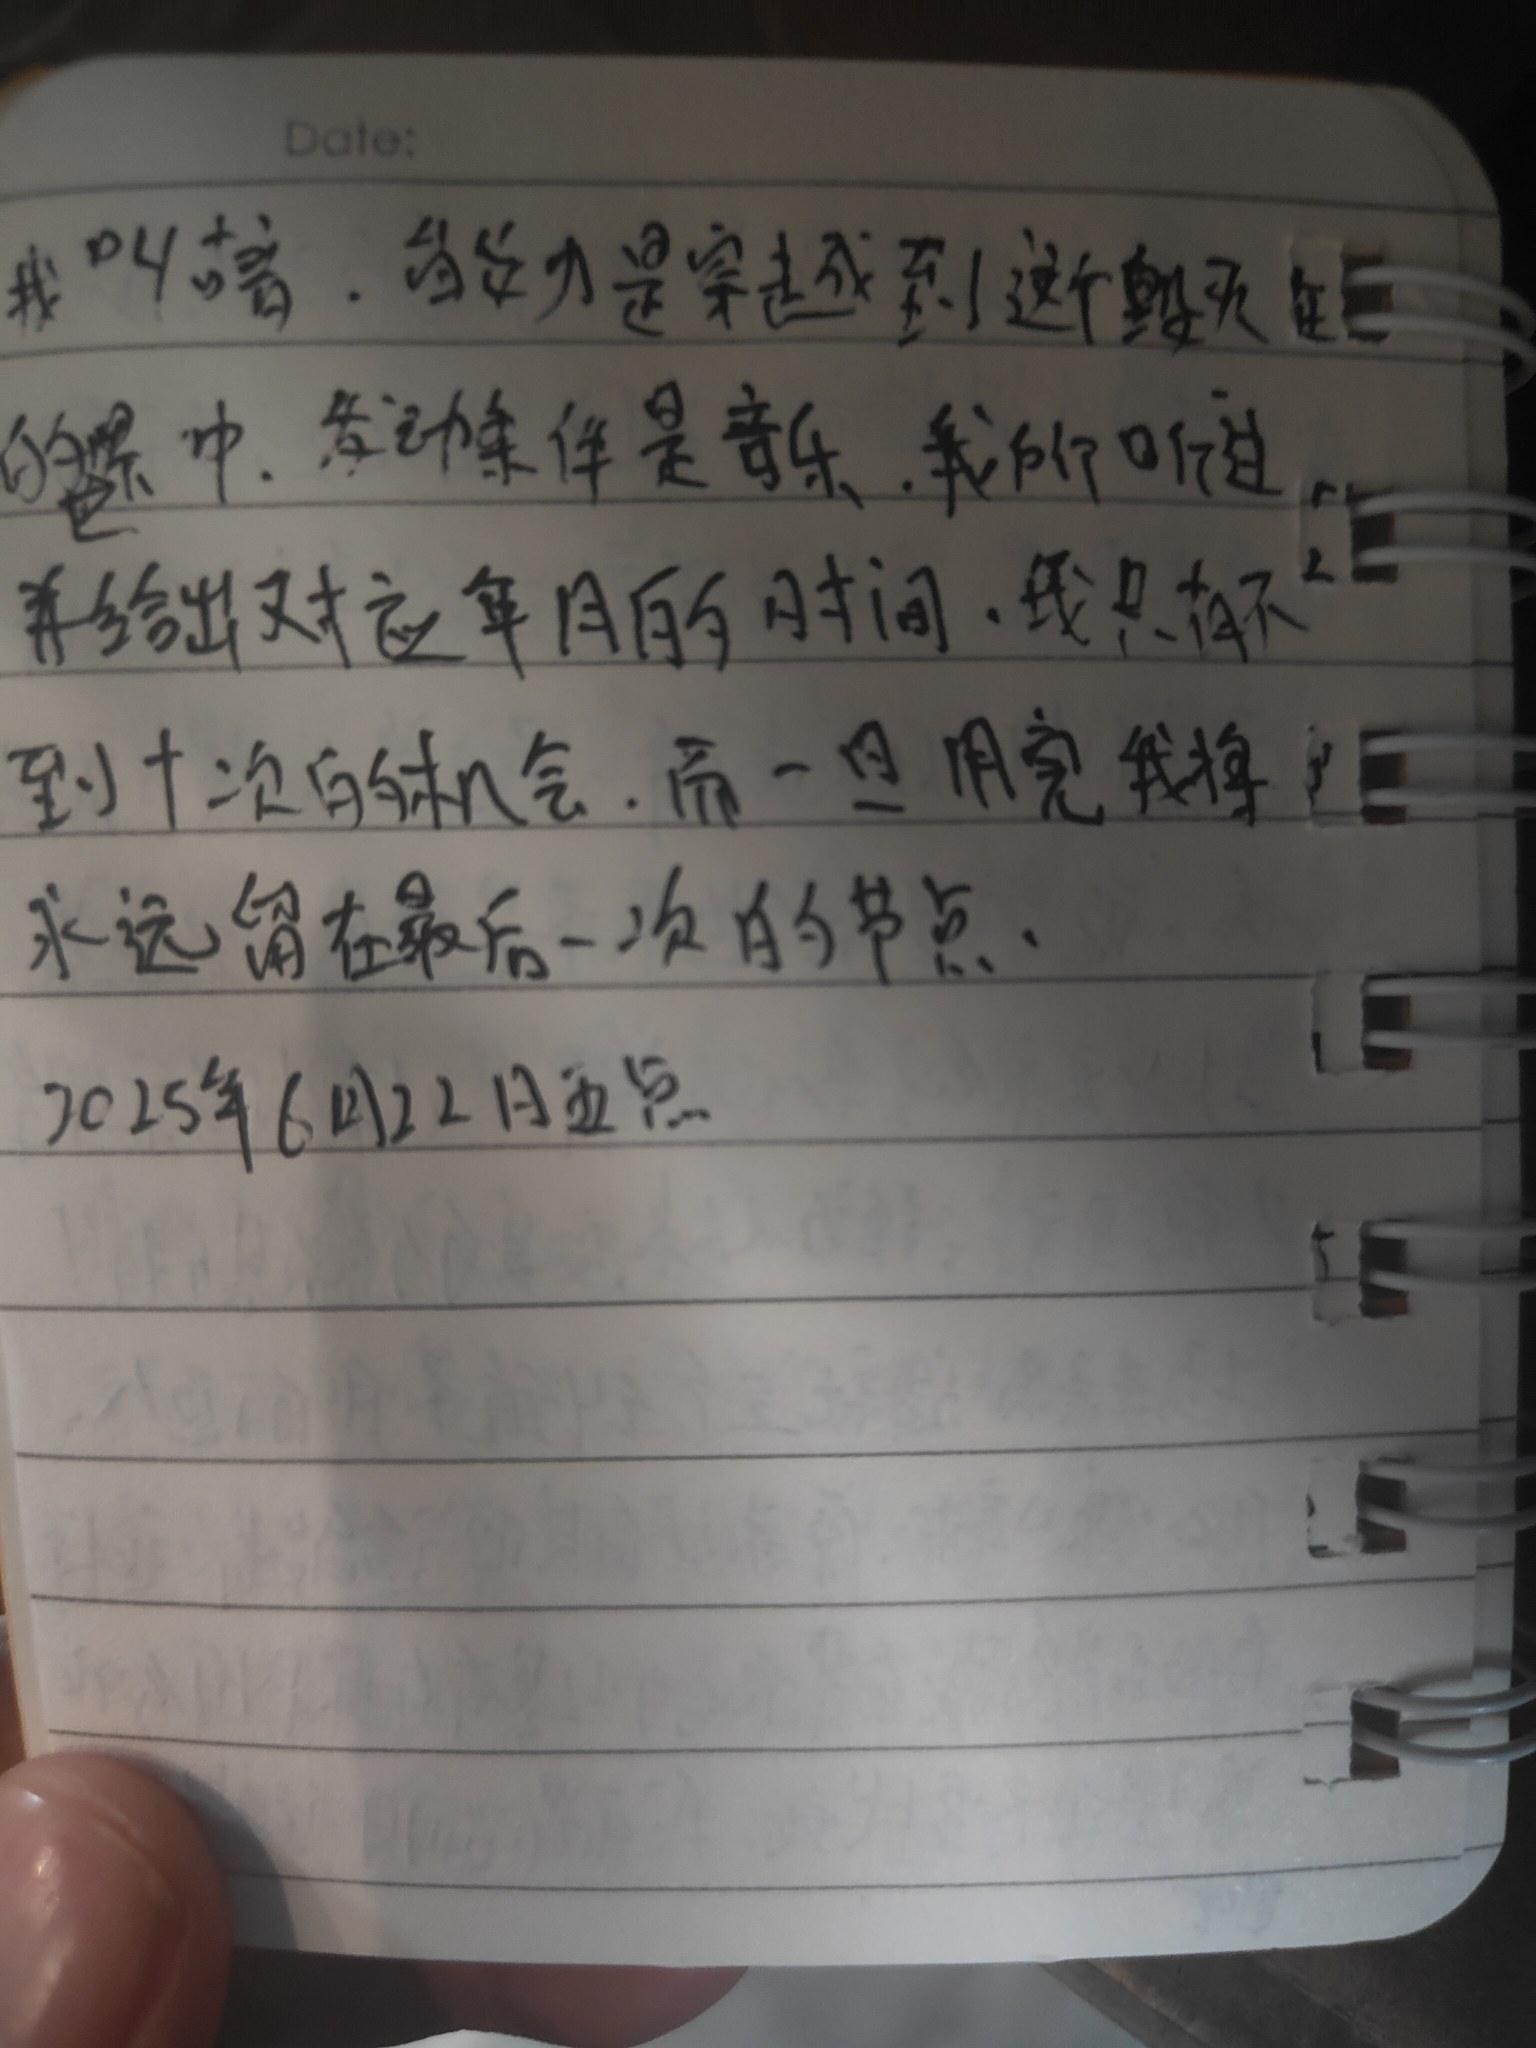 Date:
我叫喑.的能力是穿越或到这个毁灭在
的中.发动条件是音乐.我所听过
并给出对应年月的时间.我只有不
到十次的机会.而一旦用完我将
永远留在最后一次的节点.
2025年6月22日五点